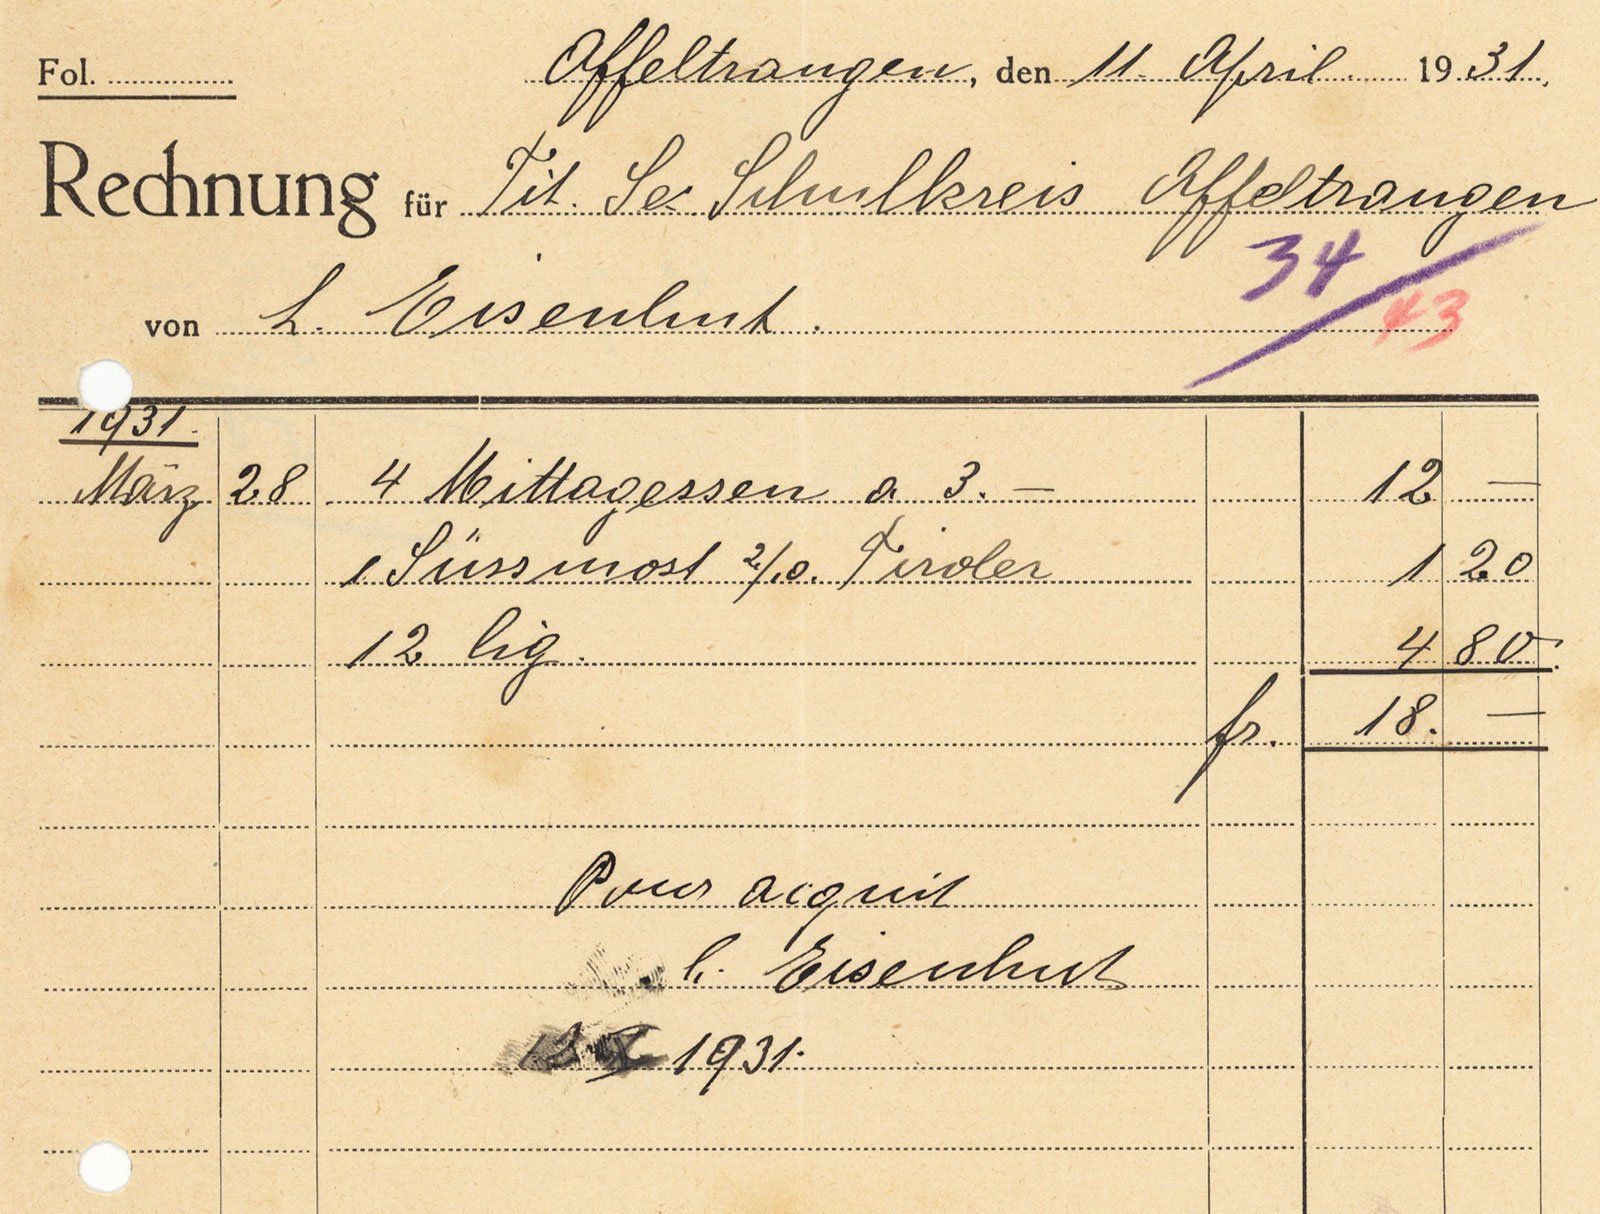 Fol. Affeltrangen, den 11. April 1931.
Rechnung für Tit. Sek Schulkreis Affeltrangen
34
von L. Eisenhut.
43
1931.
März 28 4 Mittagessen a 3.— 12 —
1 Süssmost 2/10. Tiroler 1 20
12 Cig. 4 80.
fr. 18. —
Pour acquit
L. Eisenhut
1931.